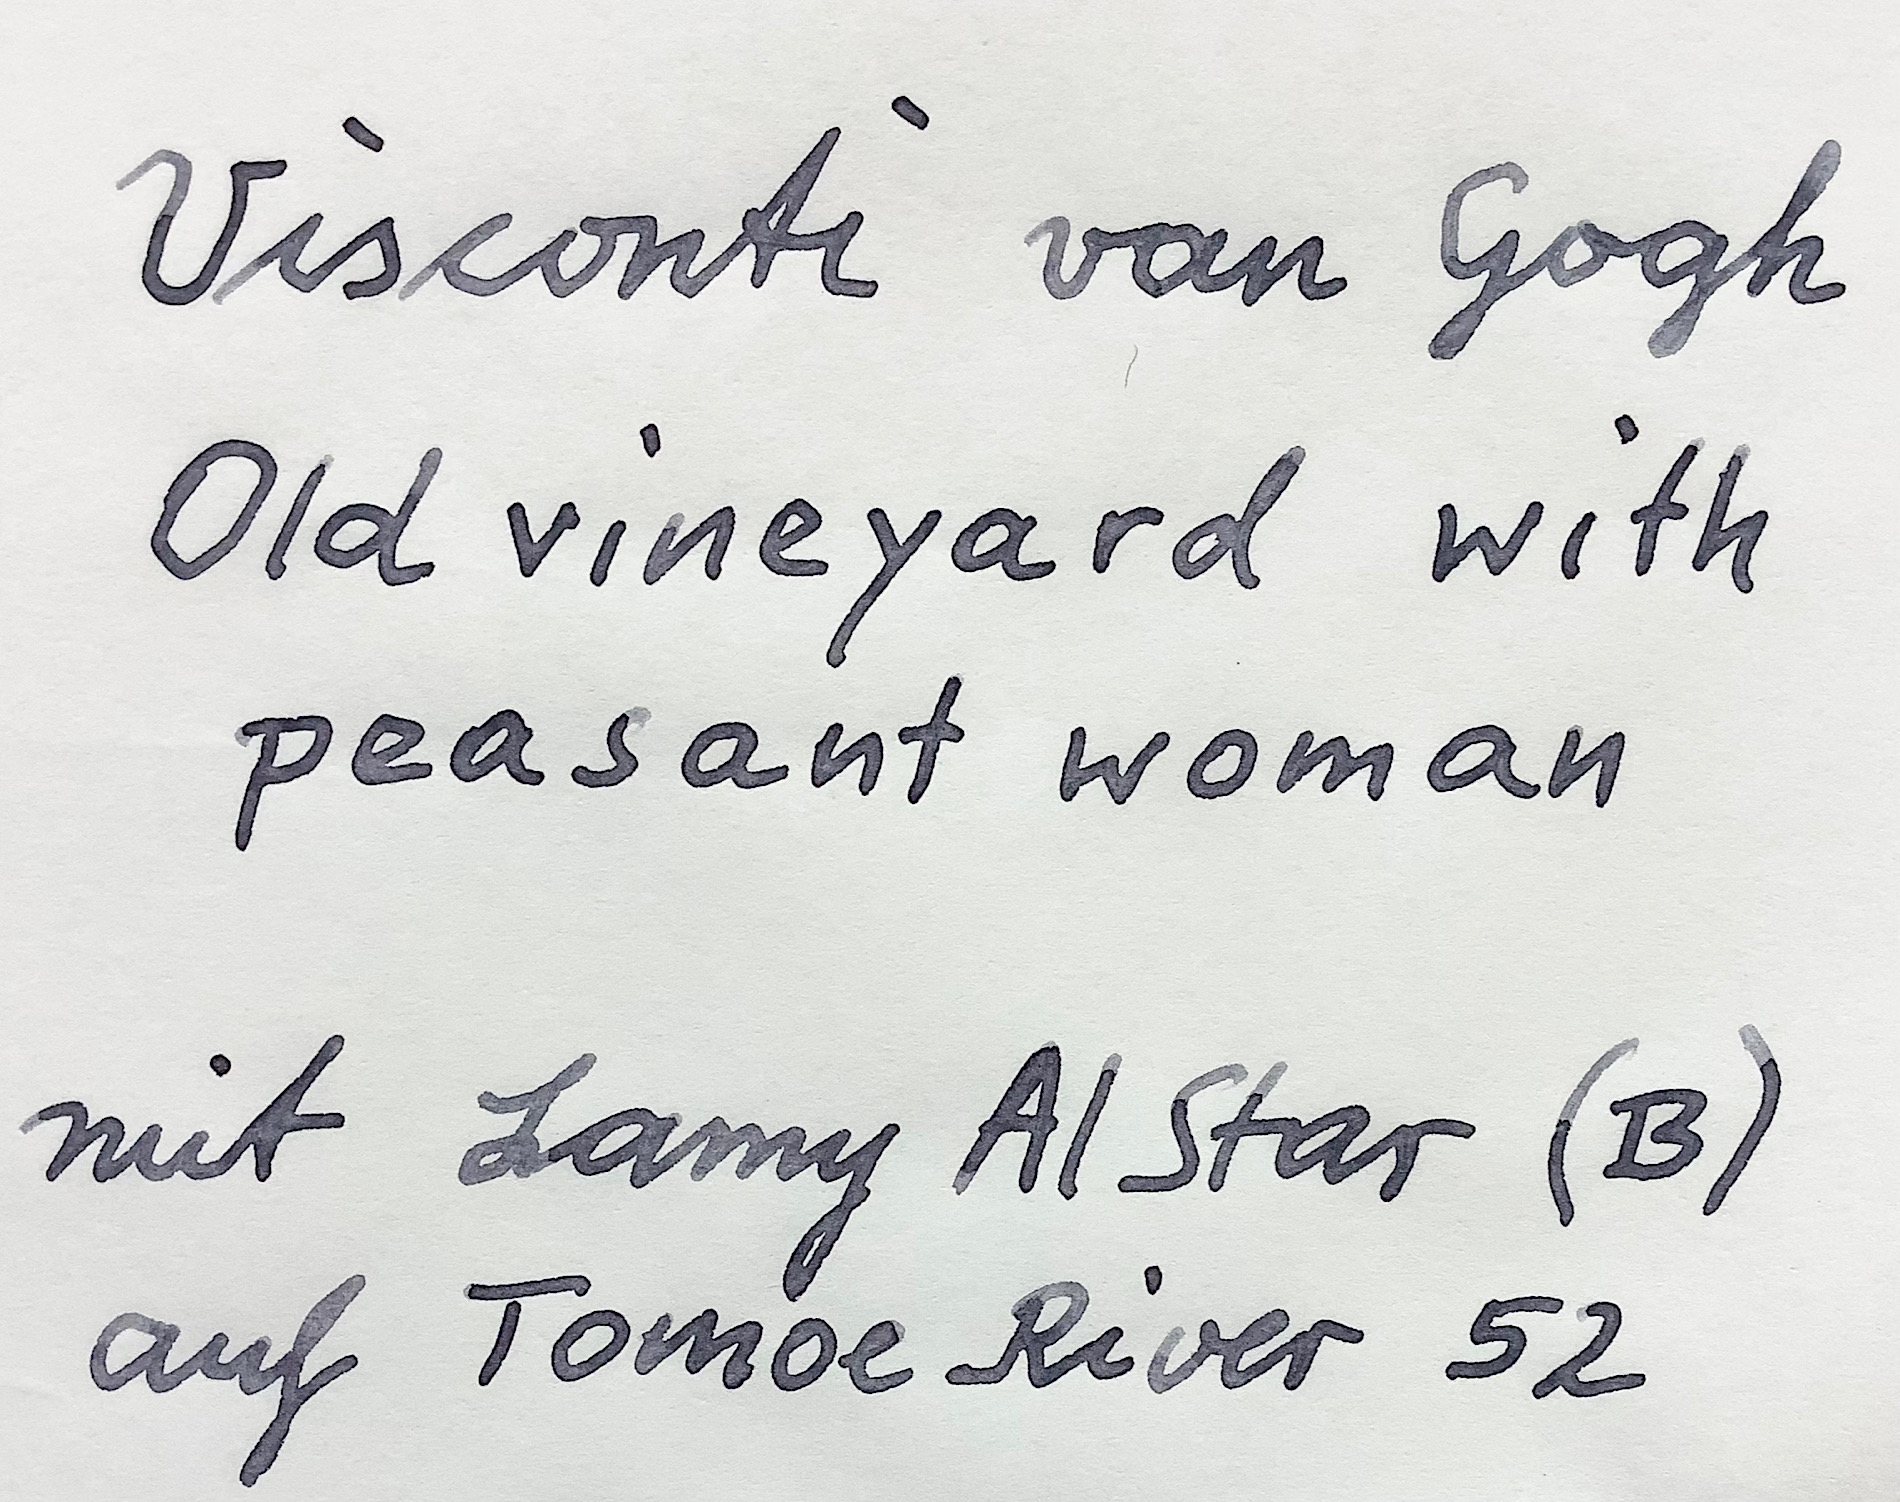 Visconti van Gogh
Old vineyard with
peasant woman
mit Lamy Al Star (B)
auf Tomoe River 52